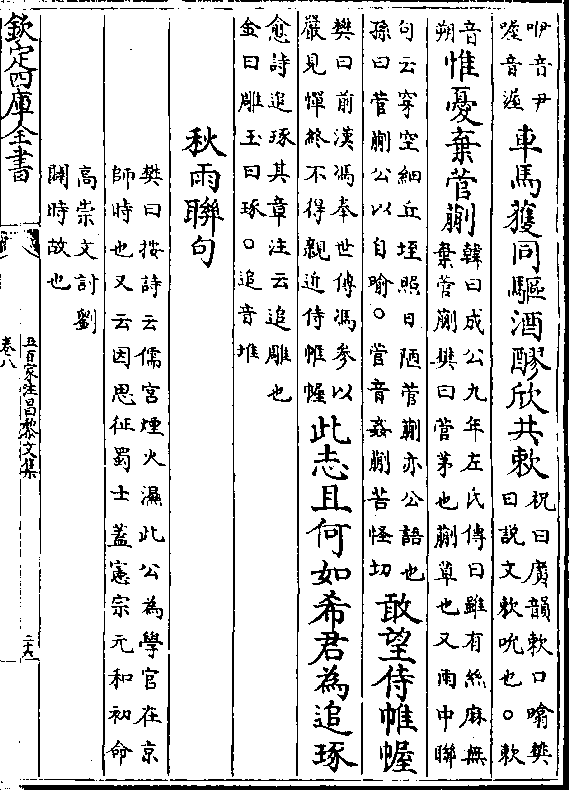 咿音尹
喔音渥
車馬獲同驅酒醪欣共欶
祝曰廣韻欶口噏樊
曰說文欶吮也○欶
音
朔
惟憂棄菅蒯
韓曰成公九年左氏傳曰雖有絲麻無
棄菅蒯樊曰菅茅也蒯草也又雨中聯
句云穿空細丘垤照日陋菅蒯亦公語也
孫曰菅蒯公以自喻○菅音姦蒯苦怪切
敢望侍帷幄
樊曰前漢馮奉世傳馮參以
嚴見憚終不得親近侍帷幄
此志且何如希君為追琢
愈詩追琢其章注云追雕也
金曰雕玉曰琢○追音堆
秋雨聯句
樊曰按詩云儒宮煙火濕此公為學官在京
師時也又云因思征蜀士蓋憲宗元和初命
高崇文討劉
闢時故也
欽定四庫全書
卷八
五百家注昌黎文集
二十六